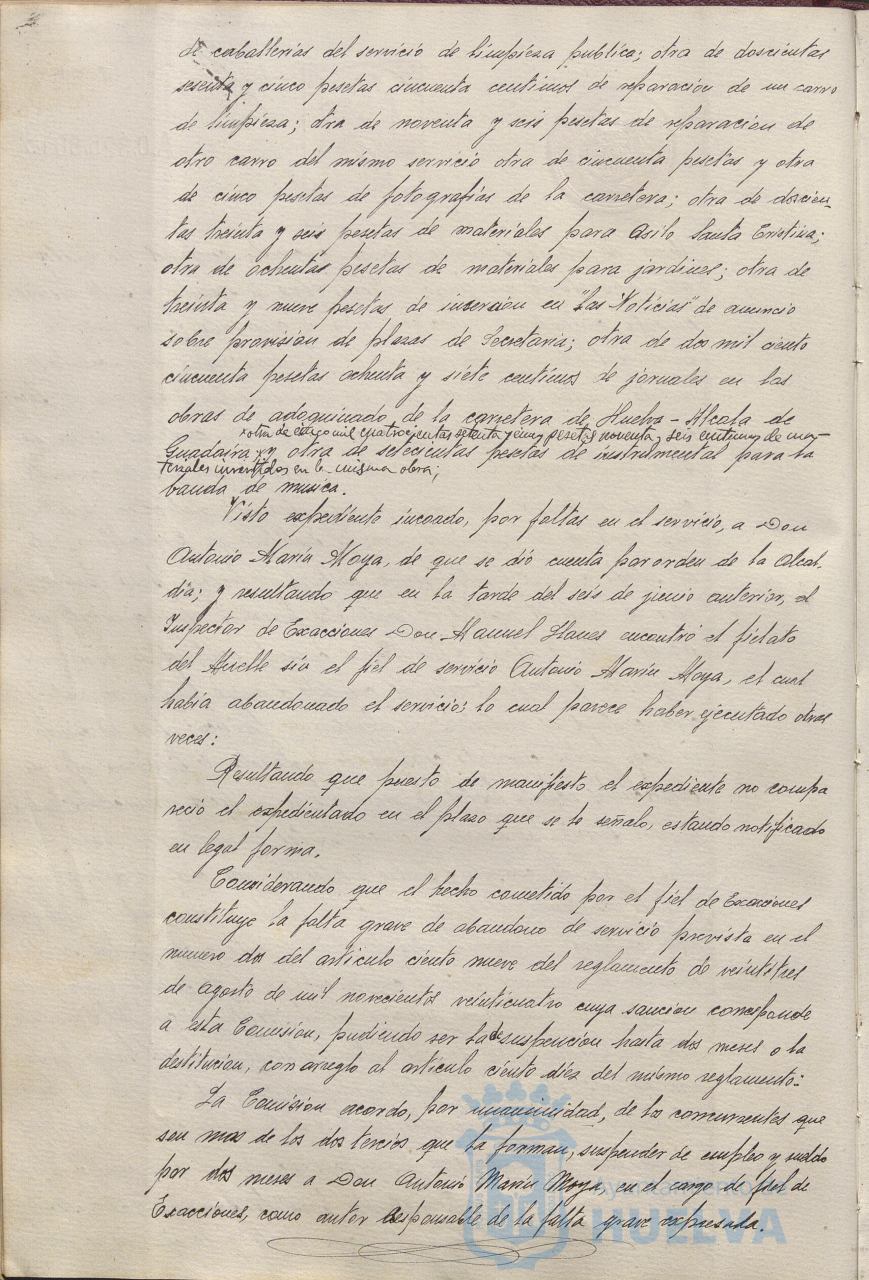 de caballerias del servicio de limpieza publica; otra de doscientas
sesenta y cinco pesetas cincuenta centimos de reparación de un carro
de limpieza; otra de noventa y seis pesetas de reparacion de
otro carro del mismo servicio otra de cincuenta pesetas y otra
de cinco pesetas de fotografias de la carretera; otra de doscien-
tas treinta y seis pesetas de materiales para Asilo Santa Cristina;
otra de ochentas pesetas de materiales para jardines; otra de
treinta y nueve pesetas de insercion en "Las Noticias" de anuncio
sobre provision de plazas de Secretaria; otra de dos mil ciento
cincuenta pesetas ochenta y siete centimos de jornales en las
obras de adoquinado de la carretera de Huelva-Alcala de
x otra de mil cuatrocientas setenta y pesetas noventa y seis centimos de ma-
Guadaira x y otra de setecientas pesetas de instrumental para la
teriales invertidos en la misma obra;
banda de musica.
Visto expediente incoado, por faltas en el servicio, a Don
Antonio Marin Moya, de que se dió cuenta por orden de la Alcal-
dia; y resultando que en la tarde del seis de junio anterior, el
Inspector de Exacciones Don Manuel Llanes encontró el fielato
del Muelle sin el fiel de servicio Antonio Marin Moya, el cual
habia abandonado el servicio; lo cual parece haber ejecutado otras
veces:
Resultando que puesto de manifiesto el expediente no compa
reció el expedientado en el plazo que se le señaló, estando notificado
en legal forma.
Considerando que el hecho cometido por el fiel de Exacciones
constituye la falta grave de abandono de servicio prevista en el
numero dos del articulo ciento nueve del reglamento de veintitres
de agosto de mil novecientos veinticuatro cuya sancion corresponde
a esta Comision, pudiendo ser la de suspencion hasta dos meses o la
destitucion, con arreglo al articulo ciento diez del mismo reglamento:
La Comision acordo, por unanimidad, de los concurrentes que
son mas de los dos tercios que la forman, suspender de empleo y sueldo
por dos meses a Don Antonio Marin Moya, en el cargo de fiel de
Exacciones, como autor responsable de la falta grave expresada.
Ayuntamiento de
HUELVA